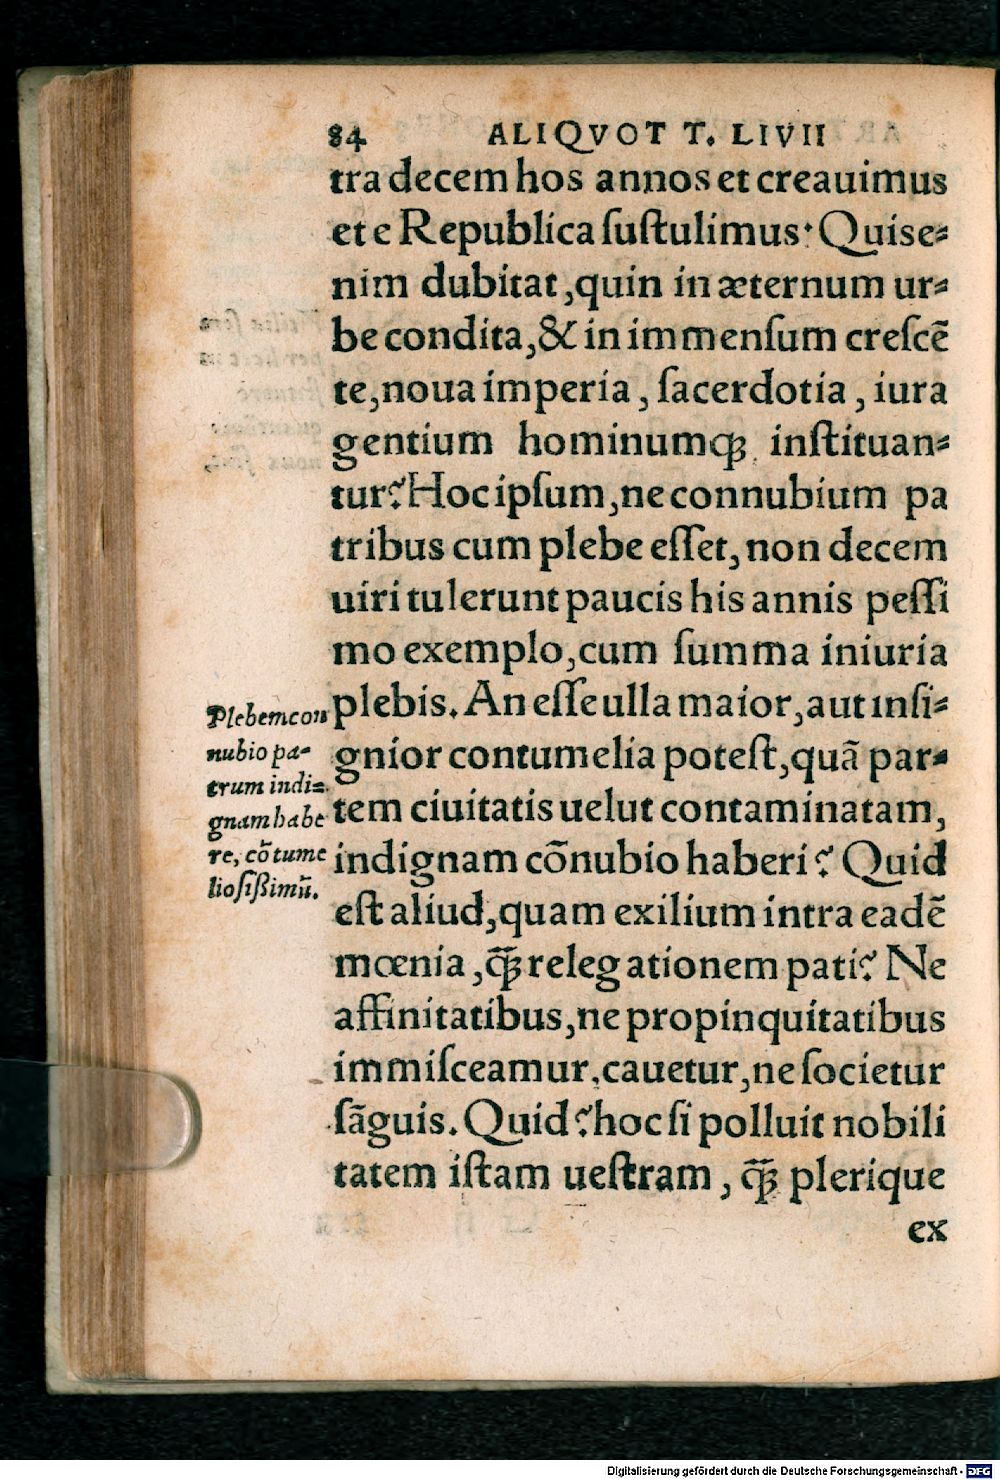 84 ALIQVOT T. LIVII
tra decem hos annos et creauimus
et e Republica ſuſtulimus· Quis e⸗
nim dubitat, quin in æternum ur⸗
be condita, & in immenſum creſcē
te, noua imperia, ſacerdotia, iura
gentium hominumꝗ; inſtituan⸗
tur? Hoc ipſum, ne connubium pa
tribus cum plebe eſſet, non decem
uiri tulerunt paucis his annis peſſi
mo exemplo, cum ſumma iniuria
plebis. An eſſe ulla maior, aut inſi⸗
gnior contumelia poteſt, quā par⸗
tem ciuitatis uelut contaminatam,
indignam cōnubio haberi? Quid
eſt aliud, quam exilium intra eadē
mœnia, ꝗ̃; relegationem pati? Ne
affinitatibus, ne propinquitatibus
immiſceamur, cauetur, ne ſocietur
ſāguis. Quid? hoc ſi polluit nobili
tatem iſtam ueſtram, ꝗ̃; plerique
ex
Plebem con
nubio pa⸗
trum indi⸗
gnam habe
re, cōtume
lioſißimū.
Digitalisierung gefördert durch die Deutsche Forschungsgemeinschaft - DFG